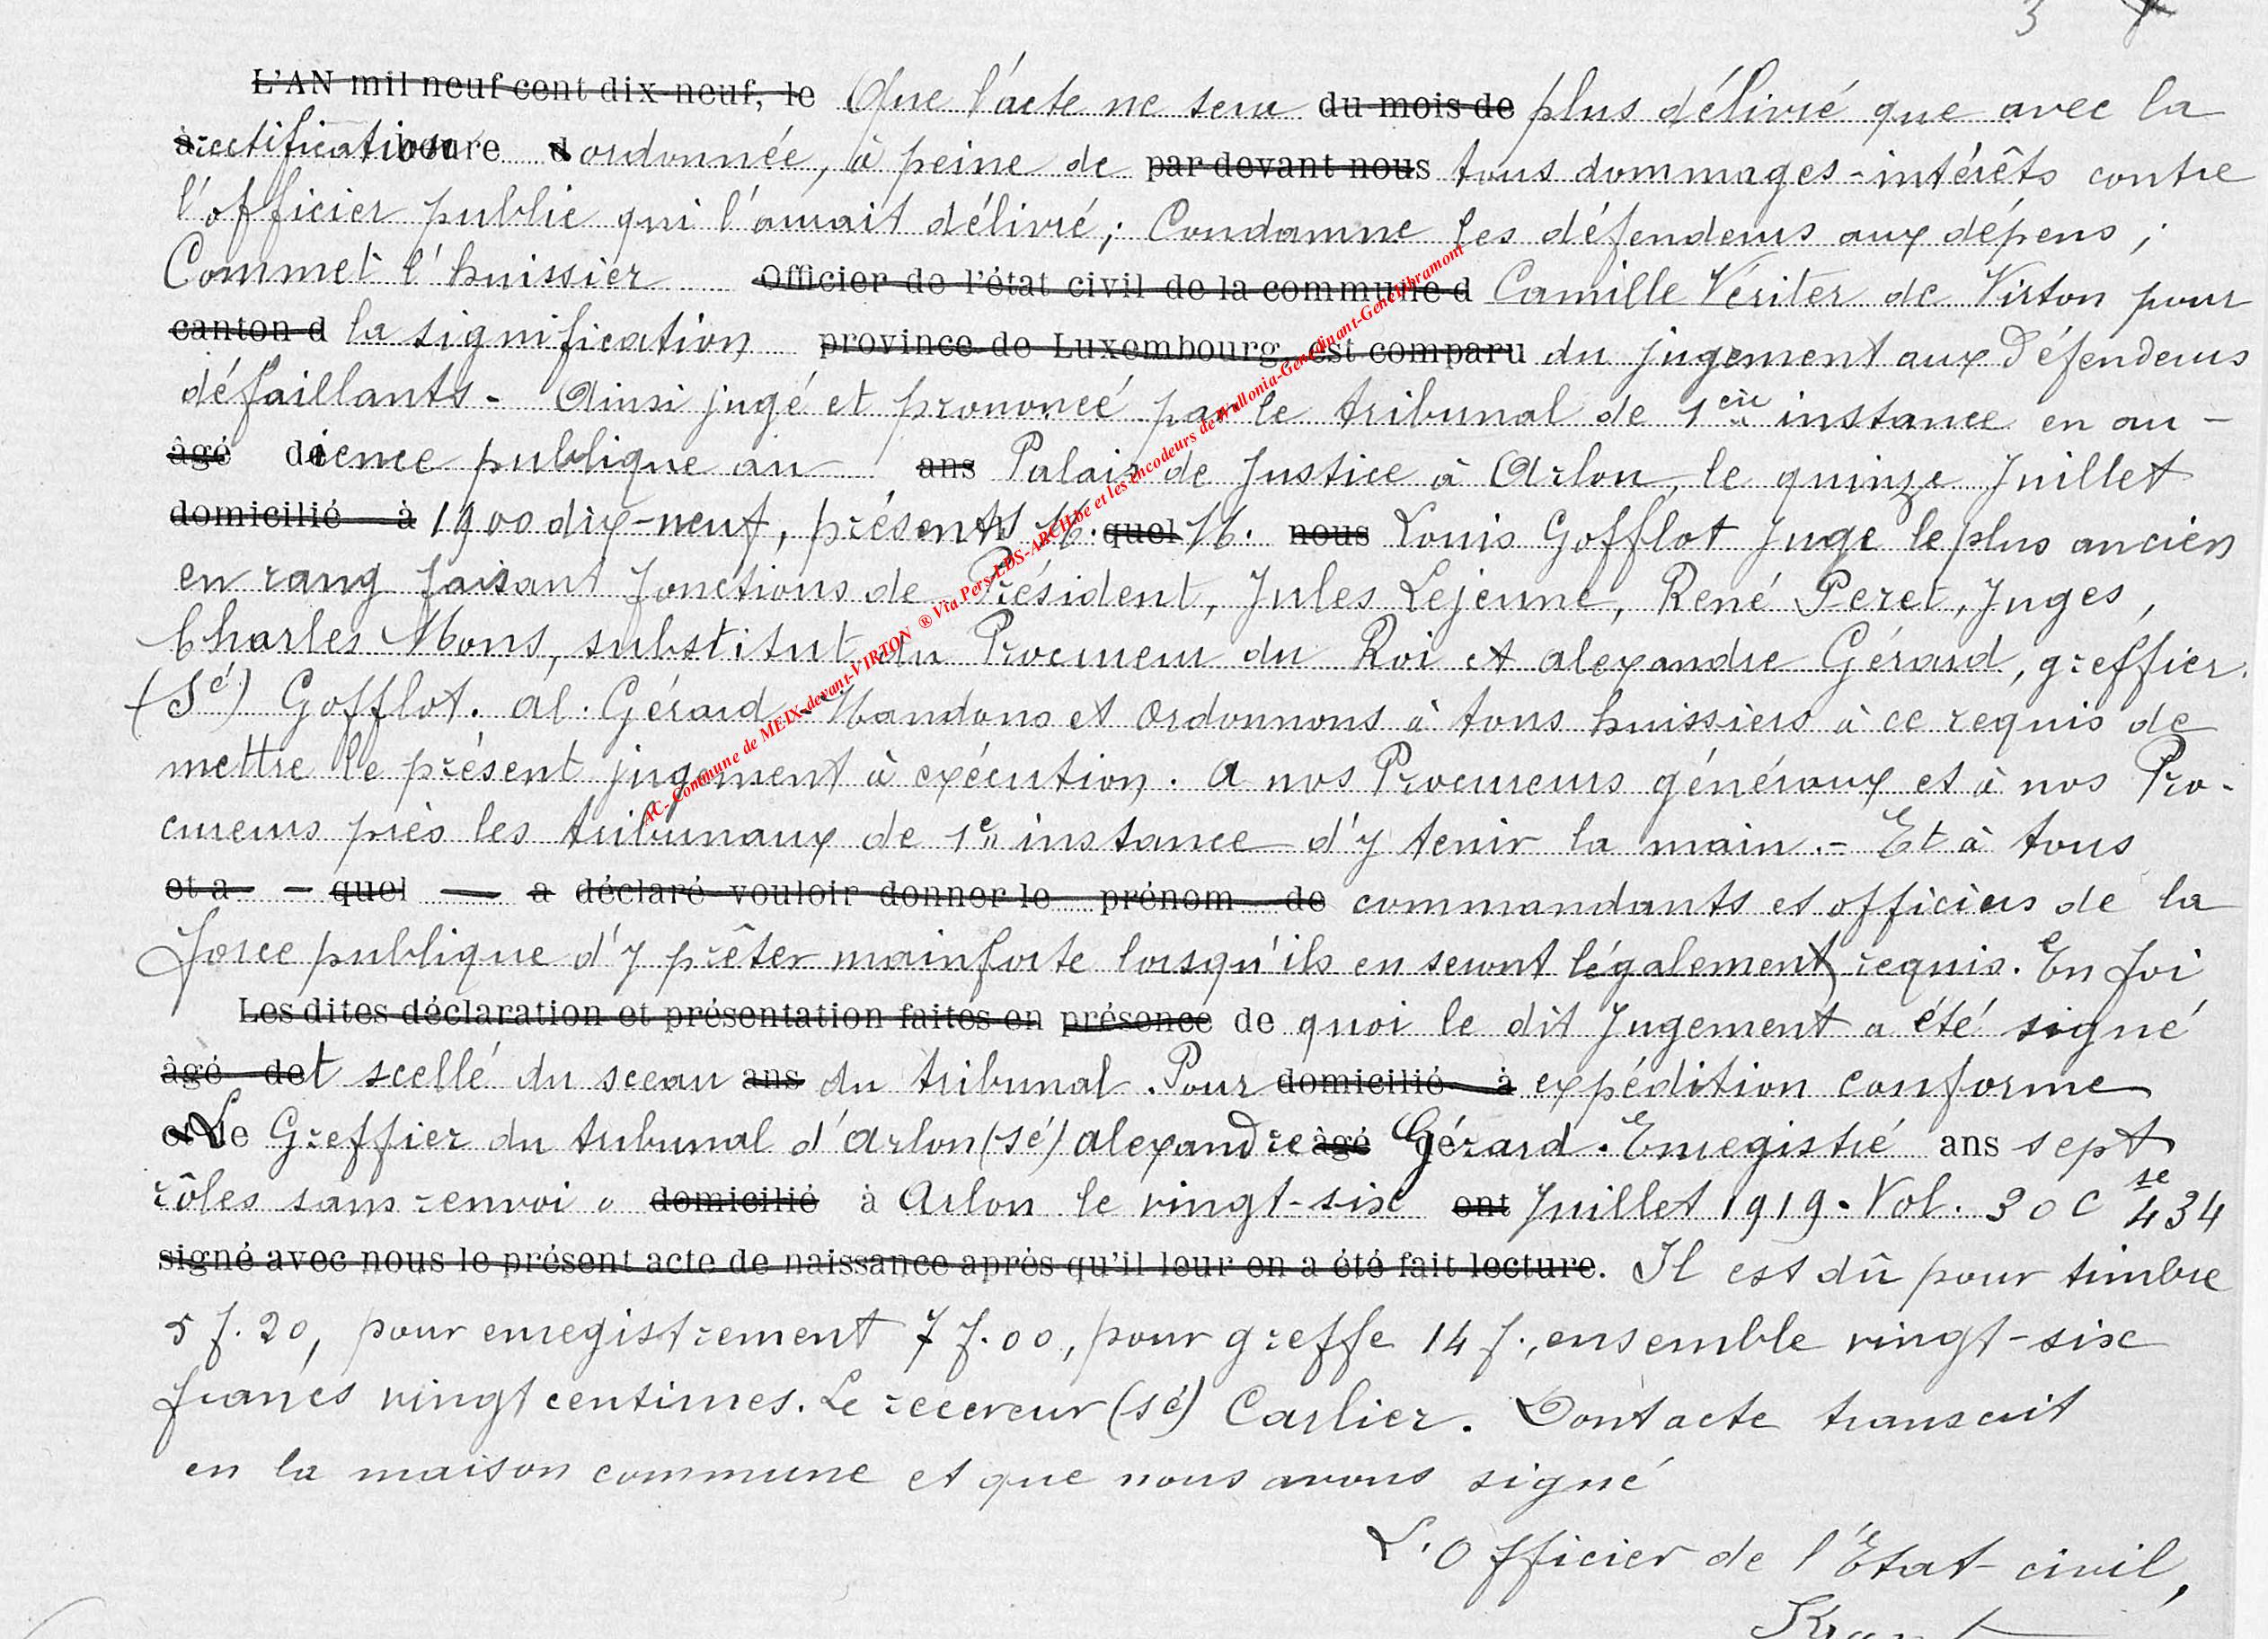 3
L'AN mil neuf cent dix-neuf, le Que l'acte ne sera du mois de plus délivré que avec la
à rectification heure d ordonnée, à peine de par devant nous tous dommages-intérêts contre
l'officier public qui l'aurait délivré; Condamne les défendeurs aux dépens;
Commet l'huissier Officier de l'état civil de la commune d Camille Vériter de Virton pour
canton d la signification province de Luxembourg, est comparu du jugement aux Défendeurs
défaillants - Ainsi jugé et prononcé par le tribunal de 1ère instance en au-
âgé de dience publique au ans Palais de Justice à Arlon, le quinze Juillet
domicilié à 1900 dix-neuf, présents M. quel M. nous Louis Gofflot Juge le plus ancien
en rang faisant fonctions de Président, Jules Lejeune, René Peret, Juges,
Charles Mons, substitut du Procureur du Roi et alexandre Gérard, greffier.
(Sé) Gofflot. Al. Gérard - Mandons et Ordonnons à tous huissiers à ce requis de
mettre le présent jugement à exécution. A nos Procureurs généraux et à nos Pro-
cureurs près les tribunaux de 1e instance d'y tenir la main.- Et à tous
et a - quel - a déclaré vouloir donner le prénom de commandants et officiers de la
force publique d'y prêter mainforte lorsqu'ils en seront légalement requis. En foi
Les dites déclaration et présentation faites en présence de quoi le dit Jugement a été signé
âgé de et scellé du sceau ans du tribunal. Pour domicilié à expédition conforme
et de Le Greffier du tribunal d'Arlon (sé) alexandre âgé Gérard. Enregistré ans sept
rôles sans renvoi domicilié à Arlon le vingt-six ont Juillet 1919. Vol. 30 C se 434
signé avec nous le présent acte de naissance après qu'il leur en a été fait lecture. Il est dû pour timbre
5 f. 20, pour enregistrement 7 f. 00, pour greffe 14 f., ensemble vingt-six
francs vingt centimes. Le receveur (sé) Carlier. Dont acte transcrit
en la maison commune et que nous avons signé
L'Officier de l'État civil,
AC- Commune de MEIX-devant-VIRTON ® Via Pers-LDS-ARCH.be et les encodeurs de Wallonia-Genedinant-GeneLibramont